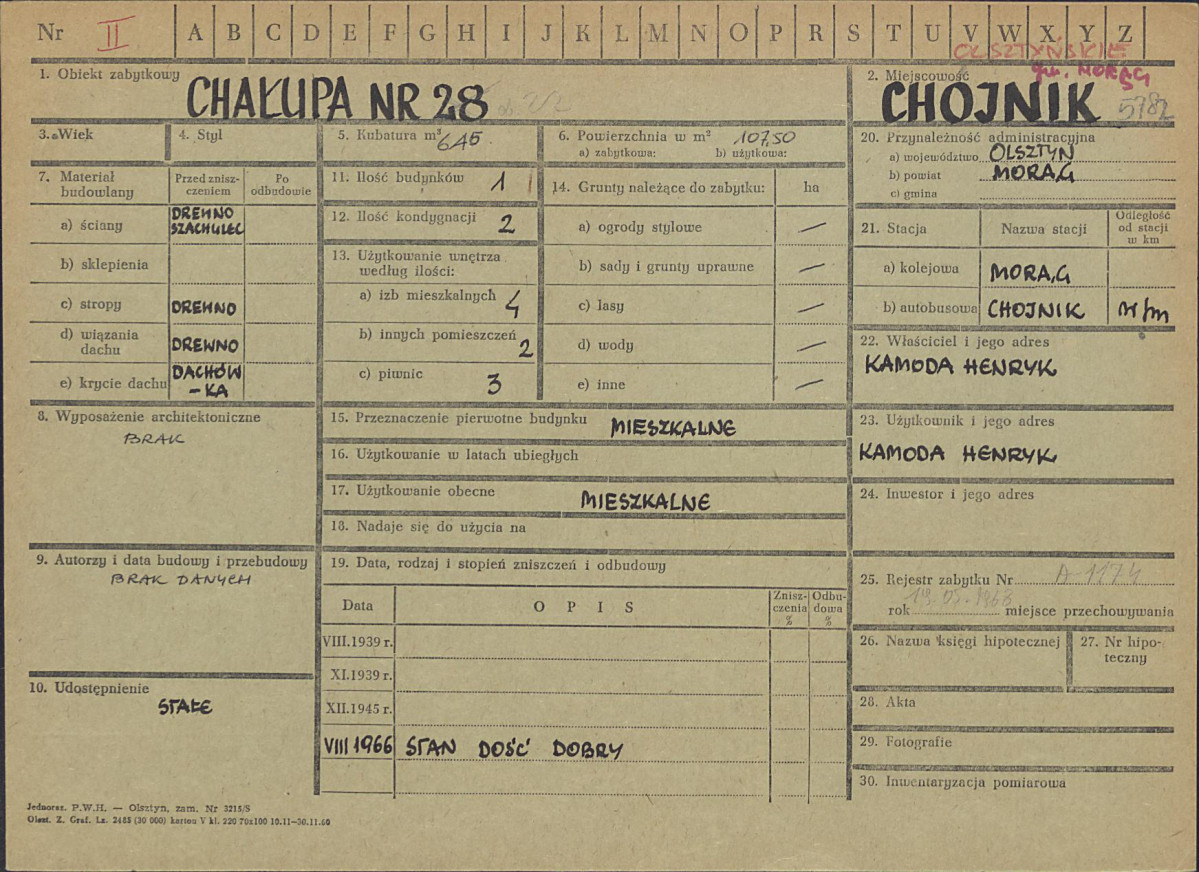 Nr II A B C D E F G H I J K L M N O P R S T U V W X Y Z
OLSZTYŃSKIE
gm. MORĄG
1. Obiekt zabytkowy
CHAŁUPA NR 28
2. Miejscowość
CHOJNIK 5782
3. Wiek
4. Styl
5. Kubatura m³ 645
6. Powierzchnia w m² 107,50
a) zabytkowa: b) użytkowa:
7. Materiał budowlany
Przed zniszczeniem
Po odbudowie
a) ściany DREWNO SZACHULEC
b) sklepienia
c) stropy DREWNO
d) wiązania dachu DREWNO
e) krycie dachu DACHÓWKA
8. Wyposażenie architektoniczne
BRAK
9. Autorzy i data budowy i przebudowy
BRAK DANYCH
10. Udostępnienie
STAŁE
11. Ilość budynków 1
12. Ilość kondygnacji 2
13. Użytkowanie wnętrza
według ilości:
a) izb mieszkalnych 4
b) innych pomieszczeń 2
c) piwnic 3
14. Grunty należące do zabytku: ha
a) ogrody stylowe —
b) sady i grunty uprawne —
c) lasy —
d) wody —
e) inne —
15. Przeznaczenie pierwotne budynku MIESZKALNE
16. Użytkowanie w latach ubiegłych
17. Użytkowanie obecne MIESZKALNE
18. Nadaje się do użycia na
19. Data, rodzaj i stopień zniszczeń i odbudowy
Data OPIS Zniszczenia % Odbudowa %
VIII.1939 r.
XI.1939 r.
XII.1945 r.
VIII 1966 STAN DOŚĆ DOBRY
20. Przynależność administracyjna
a) województwo OLSZTYN
b) powiat MORĄG
c) gmina
21. Stacja Nazwa stacji Odległość od stacji w km
a) kolejowa MORĄG
b) autobusowa CHOJNIK n/m
22. Właściciel i jego adres
KAMODA HENRYK
23. Użytkownik i jego adres
KAMODA HENRYK
24. Inwestor i jego adres
25. Rejestr zabytku Nr A-1174
rok 19.05.1968 miejsce przechowywania
26. Nazwa księgi hipotecznej
27. Nr hipoteczny
28. Akta
29. Fotografie
30. Inwentaryzacja pomiarowa
Jednoraz. P.W.H. — Olsztyn, zam. Nr 3215/S
Olszt. Z. Graf. Lz. 2485 (30 000) karton V kl. 220 70x100 10.11—30.11.60